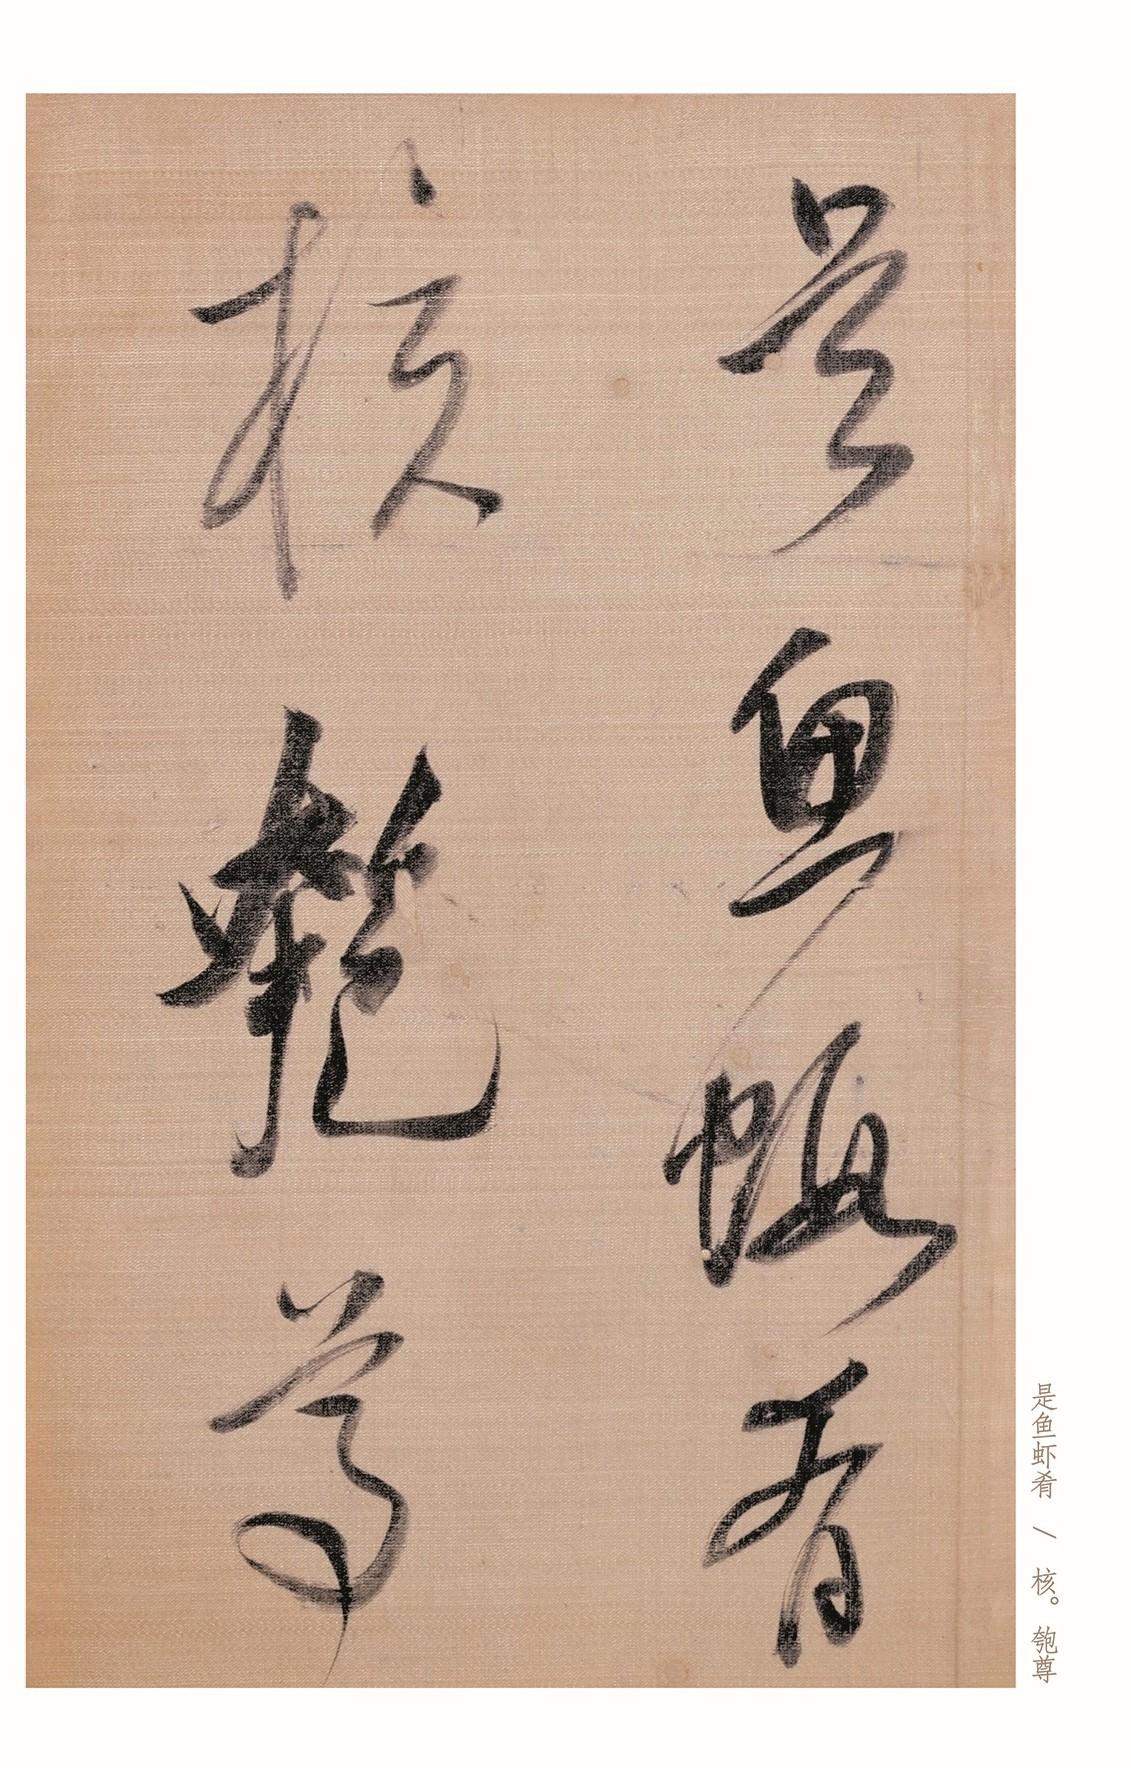 是魚蝦肴
核匏尊
是鱼虾肴 / 核。匏尊